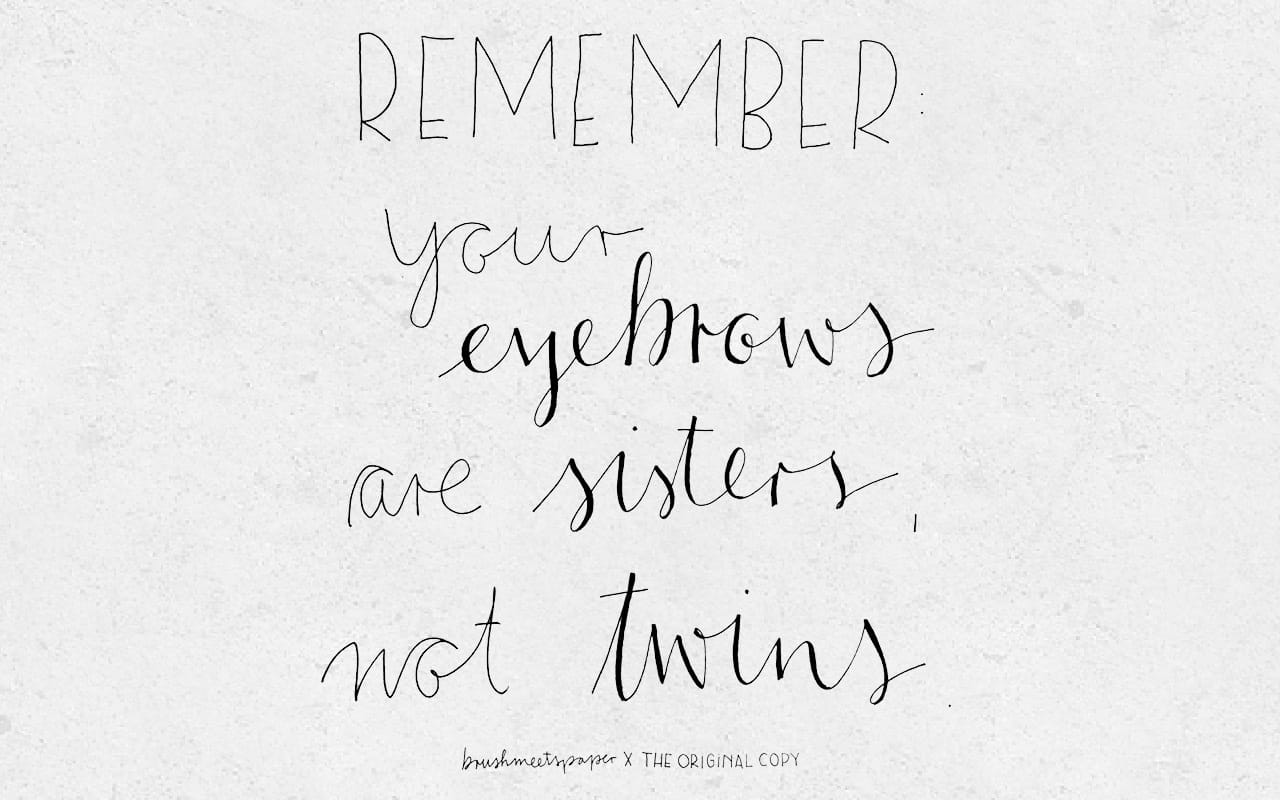 REMEMBER:
your
eyebrows
are sisters,
not twins.
brushmeetspaper X THE ORIGINAL COPY